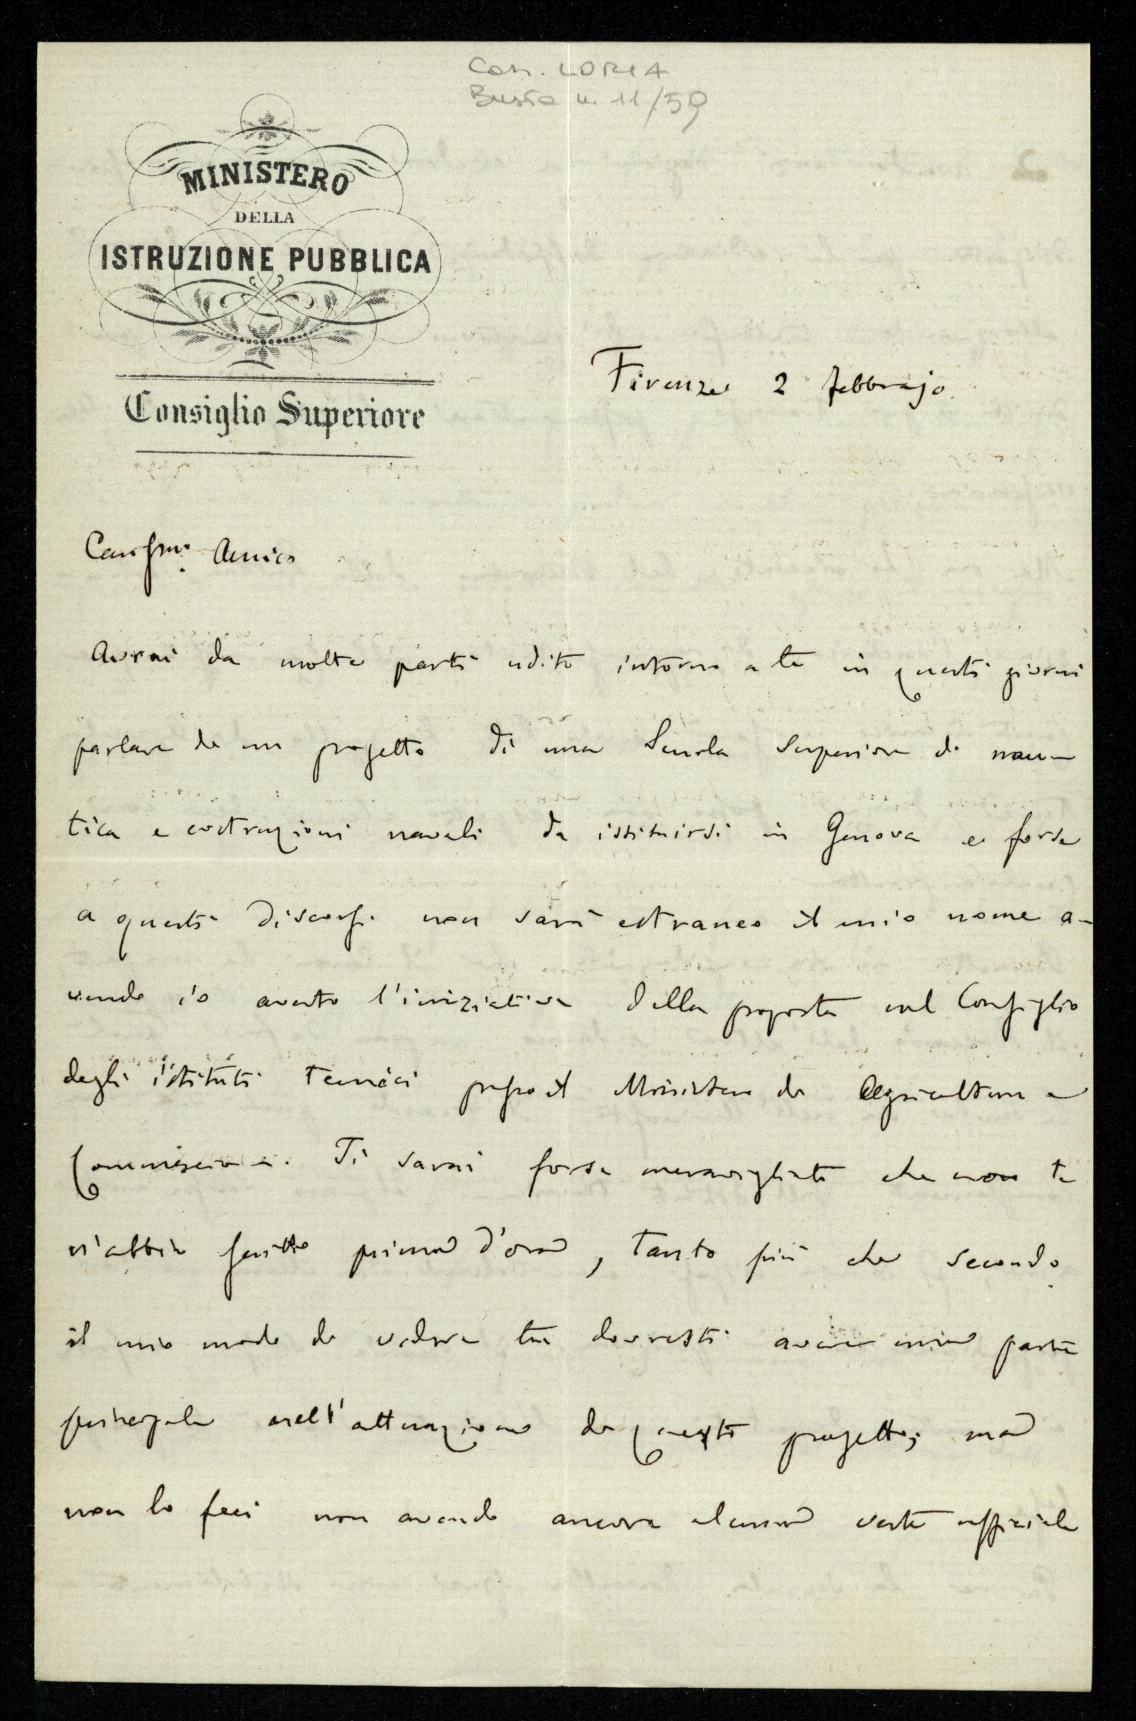 Cas. LORIA
Busta n. 11/59
MINISTERO
DELLA
ISTRUZIONE PUBBLICA
Consiglio Superiore
Firenze 2 febbrajo.
Carissmo. Amico
Avrai da molte parti udito intorno a te in questi giorni
parlare di un progetto di una Scuola Superiore di nau-
tica e costruzioni navali da istituirsi in Genova e forse
a questi discorsi non sarà estraneo il mio nome a-
vendo io avuto l'iniziativa della proposta nel Consiglio
degli istituti tecnici presso il Ministero di Agricoltura e
Commercio. Ti sarai forse meravigliato che non te
n'abbia scritto prima d'ora, tanto più che secondo
il mio modo di vedere tu dovresti avere una parte
principale nell'attuazione di questo progetto; ma
non lo feci non avendo ancora alcuna veste officiale